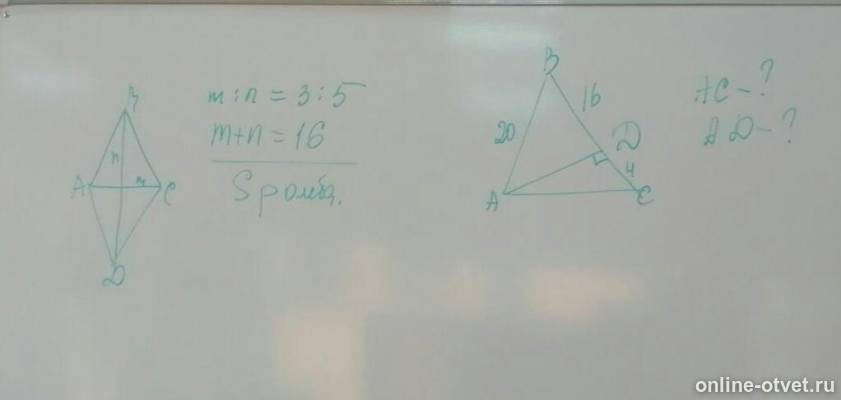 B
n
A
m
C
D
m:n = 3:5
m+n = 16
S ромба.
B
16
20
D
4
A
C
AC - ?
AD - ?
online-otvet.ru